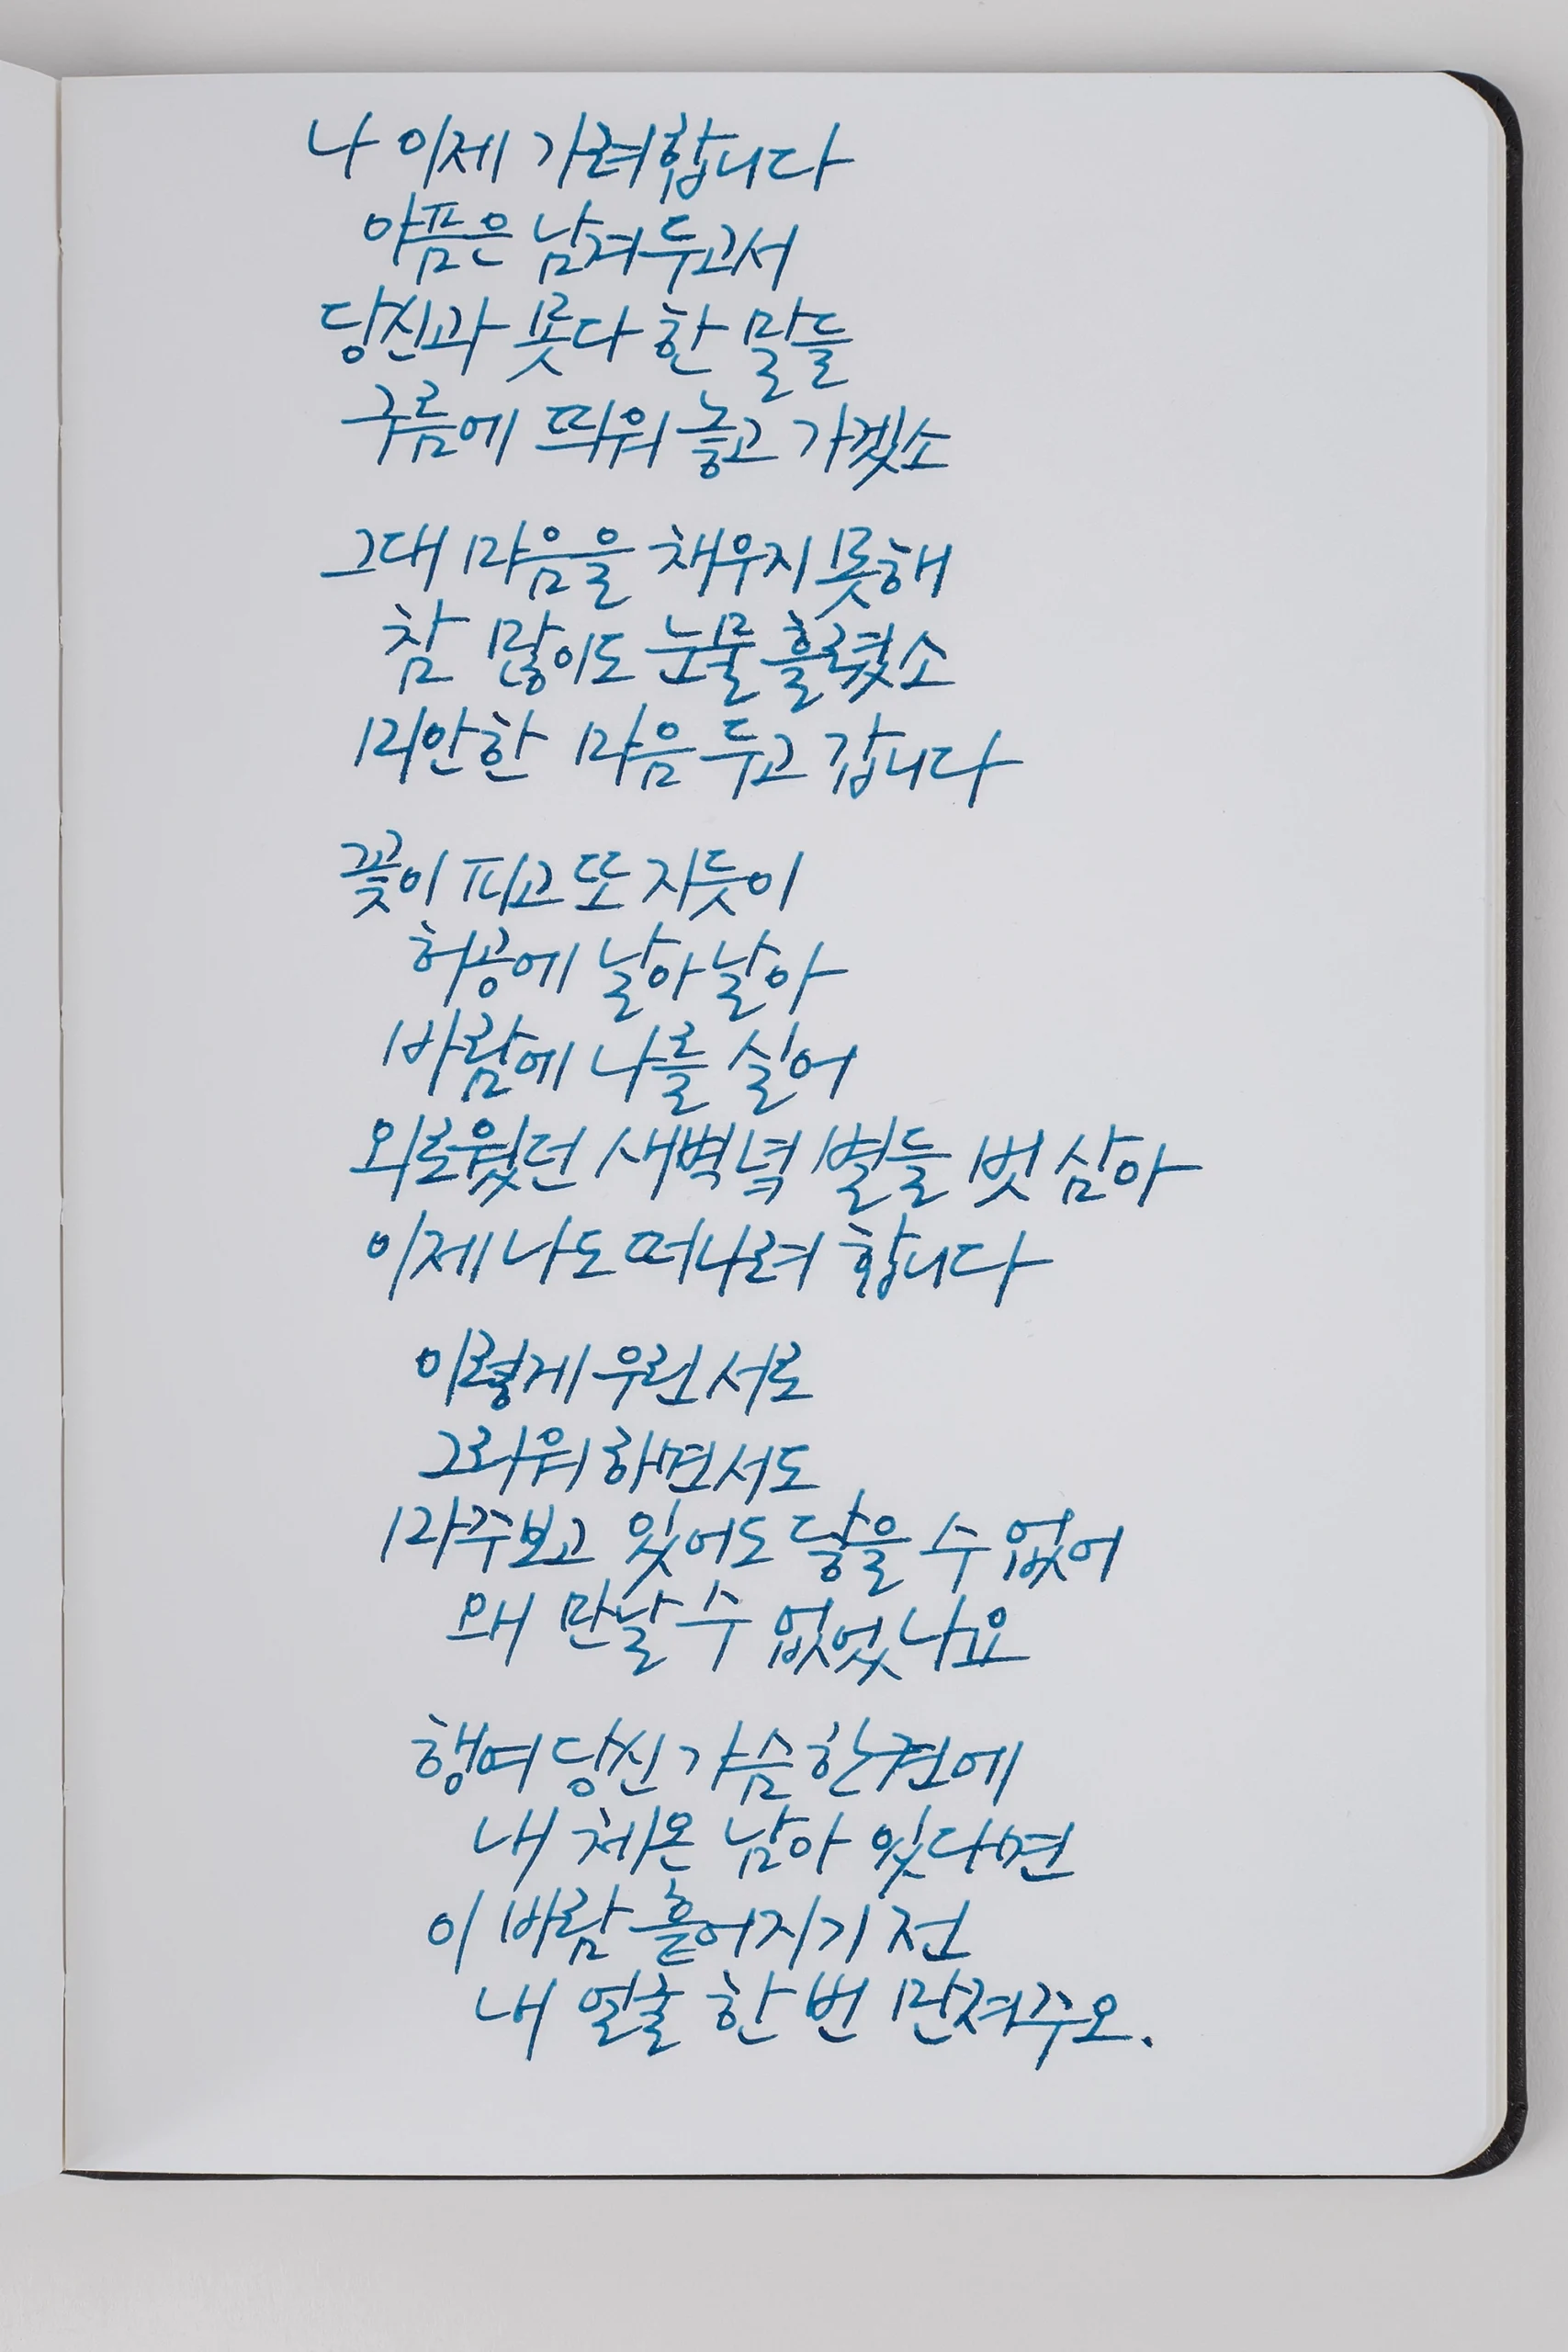 나 이제 가려합니다
아픔은 남겨두고서
당신과 못다 한 말들
구름에 띄워 놓고 가겠소
그대 마음을 채우지 못해
참 많이도 눈물 흘렸소
미안한 마음 두고 갑니다
꽃이 피고 또 지듯이
허공에 날아 날아
바람에 나를 실어
외로웠던 새벽녘 별들 벗 삼아
이제 나도 떠나려 합니다
이렇게 우린 서로
그리워하면서도
마주보고 있어도 닿을 수 없어
왜 만날 수 없었나요
행여 당신 가슴 한켠에
내 체온 남아 있다면
이 바람 흩어지기 전
내 얼굴 한 번 만져주오.